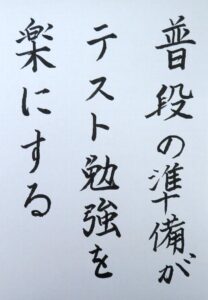 普段の準備が
テスト勉強を
楽にする